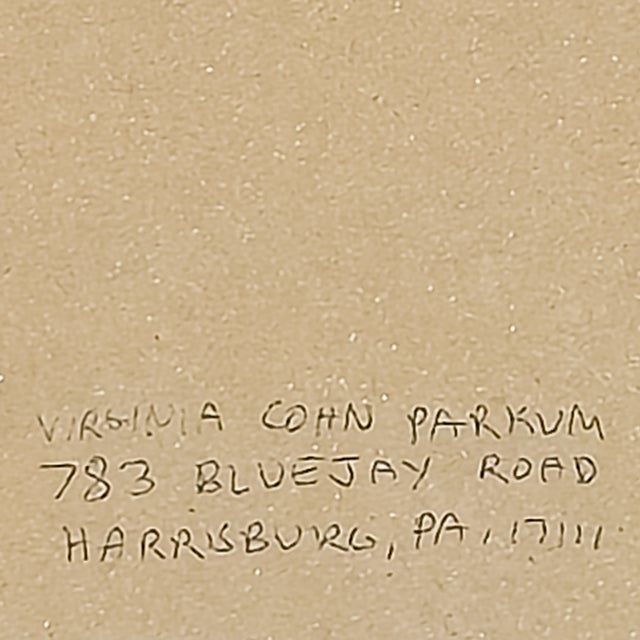 VIRGINIA COHN PARKUM
783 BLUEJAY ROAD
HARRISBURG, PA, 17111